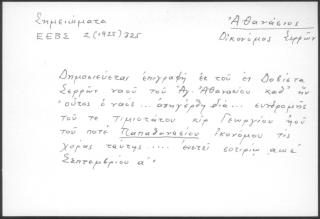 Σημειώματα
Ἀθανάσιος
ΕΕΒΣ 2(1925) 325
Οἰκονόμος Σερρῶν
Δημοσιεύεται ἐπιγραφή ἐκ τοῦ ἐν Δοβίστα
Σερρῶν ναοῦ τοῦ Ἁγ. Ἀθανασίου καθ' ἥν
"οὗτος ὁ ναός... ἀνηγέρθη διά... συνδρομῆς
τοῦ τε τιμιοτάτου κὺρ Γεωργίου υἱοῦ
τοῦ ποτέ Παπαθανασίου οἰκονόμου τῆς
χώρας ταύτης..... σωτηρίῳ αωε
Σεπτεμβρίου α'